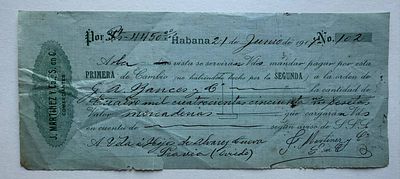 J. MARTINEZ Y Cª S. en C.
COMERCIANTES
Por Ps 4450
Habana 21 de Junio de 19 No. 102
A la vista se servirán Vds mandar pagar por esta
PRIMERA de Cambio (no habiéndolo hecho por la SEGUNDA) a la orden de
G. A. Bances y Cª la cantidad de
Cuatro mil cuatrocientas cincuenta Pesetas
Valor que cargarán Vds
en cuenta de según aviso de S. S. S.
A Vda é Hijos de Alvarez Cueva
Pravia (Oviedo)
J. Martinez y Cª
S. en C.